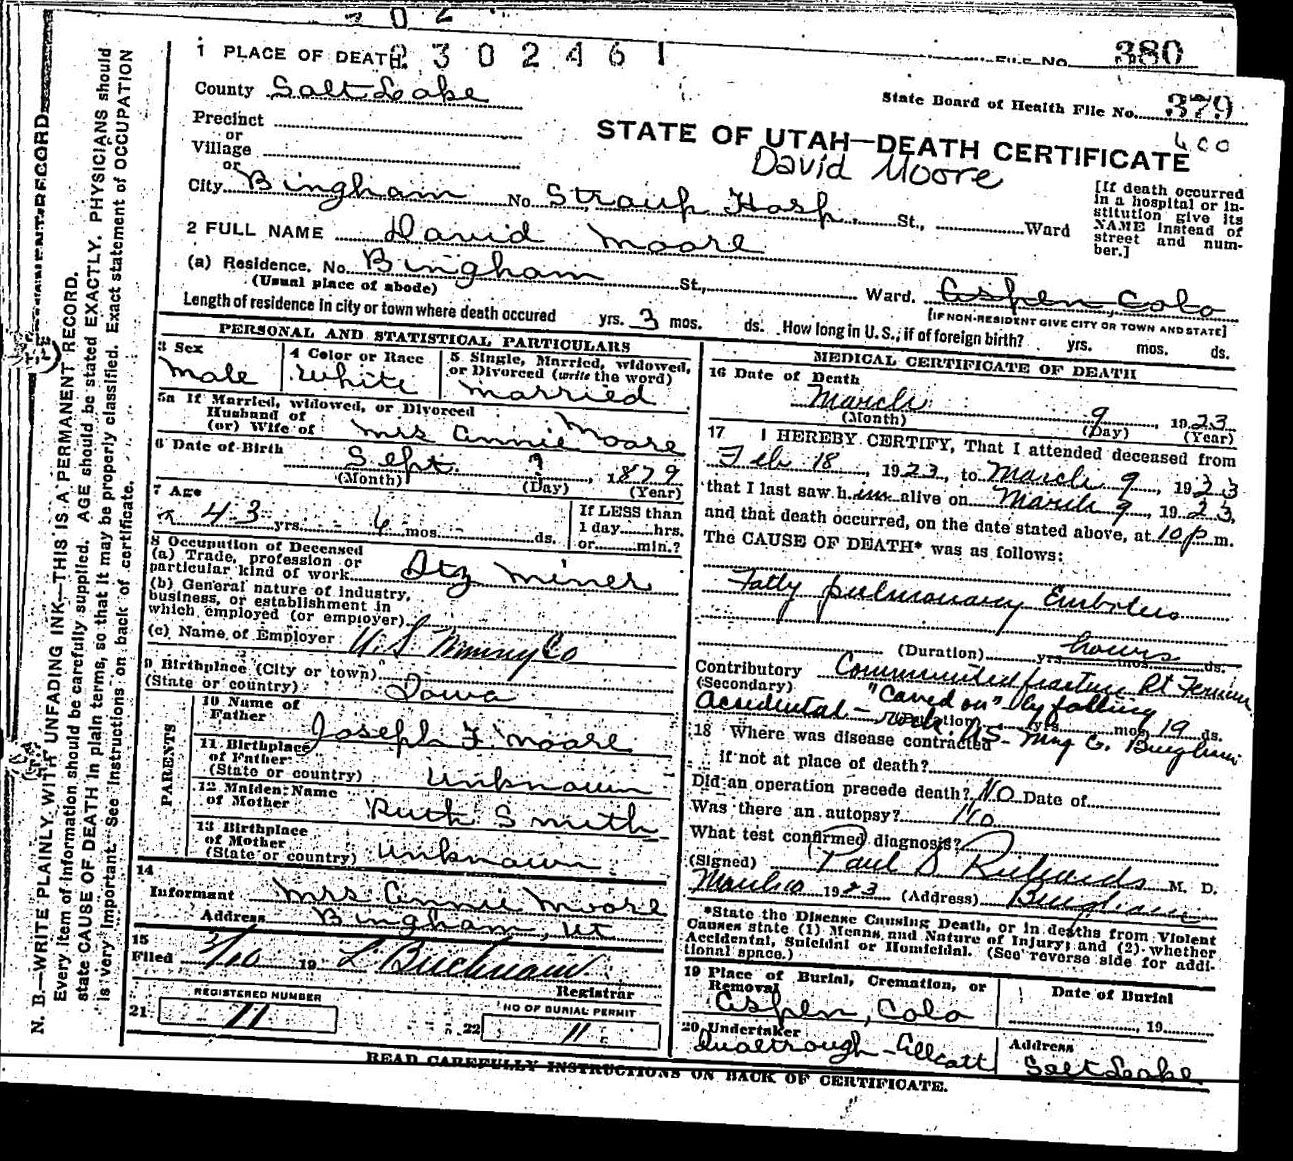 380
1 PLACE OF DEATH 2302461 FILE NO.
County Salt Lake State Board of Health File No. 379
Precinct
or
Village
or
STATE OF UTAH—DEATH CERTIFICATE
David Moore
City Bingham No. Straup Hosp. St., Ward
[If death occurred in a hospital or in-
stitution give its
NAME instead of
street and num-
ber.]
2 FULL NAME David Moore
(a) Residence. No. Bingham St., Ward. Aspen, Colo
(Usual place of abode) [IF NON-RESIDENT GIVE CITY OR TOWN AND STATE]
Length of residence in city or town where death occured yrs. 3 mos. ds. How long in U. S., if of foreign birth? yrs. mos. ds.
PERSONAL AND STATISTICAL PARTICULARS
3 Sex
Male
4 Color or Race
White
5 Single, Married, widowed,
or Divorced (write the word)
Married
5a If Married, widowed, or Divorced
Husband of
(or) Wife of Mrs Annie Moore
6 Date of Birth Sept. 9, 1879
(Month) (Day) (Year)
7 Age
43 yrs. 6 mos. ds.
If LESS than
1 day hrs.
or min.?
8 Occupation of Deceased
(a) Trade, profession or
particular kind of work Qtz Miner
(b) General nature of industry,
business, or establishment in
which employed (or employer)
(c) Name of Employer U. S. Mining Co
9 Birthplace (City or town)
(State or country) Iowa
PARENTS
10 Name of
Father Joseph F Moore
11 Birthplace
of Father
(State or country) Unknown
12 Maiden Name
of Mother Ruth Smith
13 Birthplace
of Mother
(State or country) Unknown
14
Informant Mrs Annie Moore
Address Bingham, Ut
15
Filed 3/10 19 L Buchmann
Registrar
REGISTERED NUMBER
21 11
NO OF BURIAL PERMIT
22 11
MEDICAL CERTIFICATE OF DEATH
16 Date of Death
March 9, 1923
(Month) (Day) (Year)
17 I HEREBY CERTIFY, That I attended deceased from
Feb 18, 1923, to March 9, 1923
that I last saw him alive on March 9, 1923,
and that death occurred, on the date stated above, at 10 p m.
The CAUSE OF DEATH* was as follows:
Fatty pulmonary Embolus
(Duration) yrs. mos. ds. hours
Contributory Comminuted fracture Rt Femur
(Secondary)
Accidental - "Caved on" by falling
rock. (Duration) yrs. mos. 19 ds.
U S - Mng Co. Bingham
18 Where was disease contracted
if not at place of death?
Did an operation precede death? No Date of
Was there an autopsy? No
What test confirmed diagnosis?
(Signed) Paul S Richards M. D.
March 10 1923 (Address) Bingham
*State the Disease Causing Death, or in deaths from Violent
Causes state (1) Means and Nature of Injury; and (2) whether
Accidental, Suicidal or Homicidal. (See reverse side for addi-
tional space.)
19 Place of Burial, Cremation, or
Removal
Aspen, Colo
Date of Burial
, 19
20 Undertaker
Qualtrough-Allcott
Address
Salt Lake
READ CAREFULLY INSTRUCTIONS ON BACK OF CERTIFICATE.
N. B.—WRITE PLAINLY WITH UNFADING INK—THIS IS A PERMANENT RECORD.
Every item of information should be carefully supplied. AGE should be stated EXACTLY. PHYSICIANS should
state CAUSE OF DEATH in plain terms, so that it may be properly classified. Exact statement of OCCUPATION
is very important. See instructions on back of certificate.